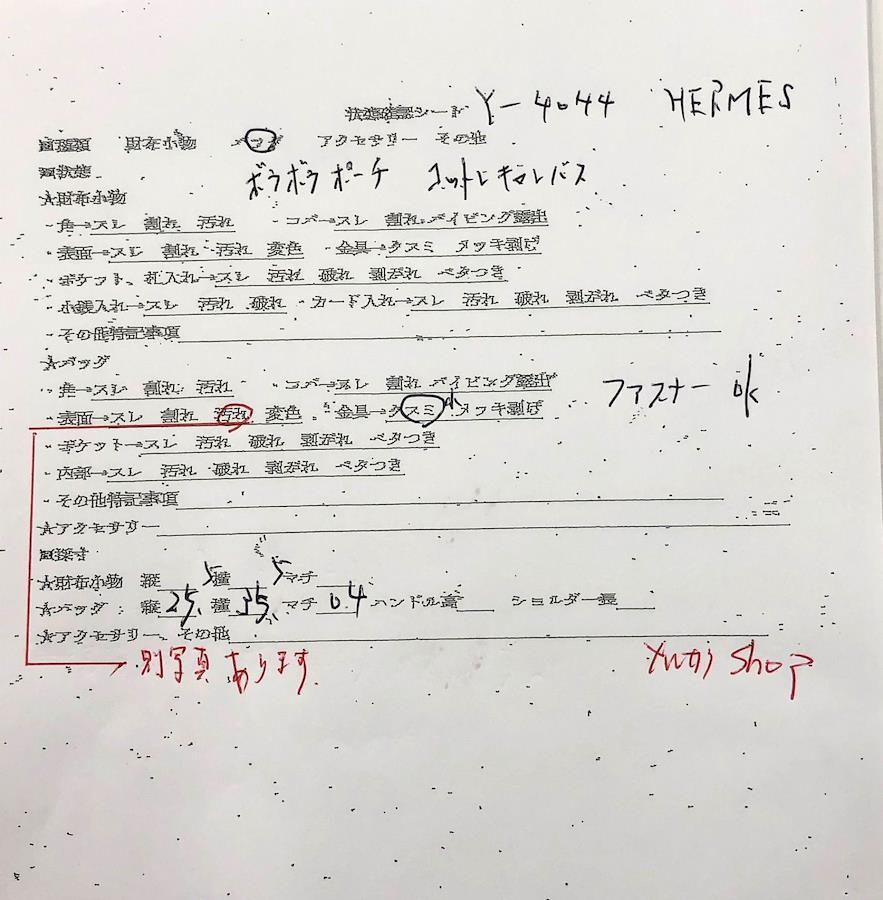 状態確認シート Y-4044 HERMES
■種類 財布小物 バッグ アクセサリー その他
■状態 ボラボラ ポーチ コットン キャンバス
★財布小物
・角→スレ 割れ 汚れ ・コバ→スレ 割れ パイピング露出
・表面→スレ 割れ 汚れ 変色 ・金具→クスミ メッキ剥げ
・ポケット、札入れ→スレ 汚れ 破れ 剥がれ ベタつき
・小銭入れ→スレ 汚れ 破れ ・カード入れ→スレ 汚れ 破れ 剥がれ ベタつき
・その他特記事項
★バッグ
・角→スレ 割れ 汚れ ・コバ→スレ 割れ パイピング露出 ファスナー ok
・表面→スレ 割れ 汚れ 変色 ・金具→クスミ メッキ剥げ
・ポケット→スレ 汚れ 破れ 剥がれ ベタつき
・内部→スレ 汚れ 破れ 剥がれ ベタつき
・その他特記事項
★アクセサリー
■採寸
★財布小物 縦 横 マチ
★バッグ : 縦 25.5 横 35.5 マチ 0.4 ハンドル高 ショルダー長
★アクセサリー、その他
別写真あります Shop